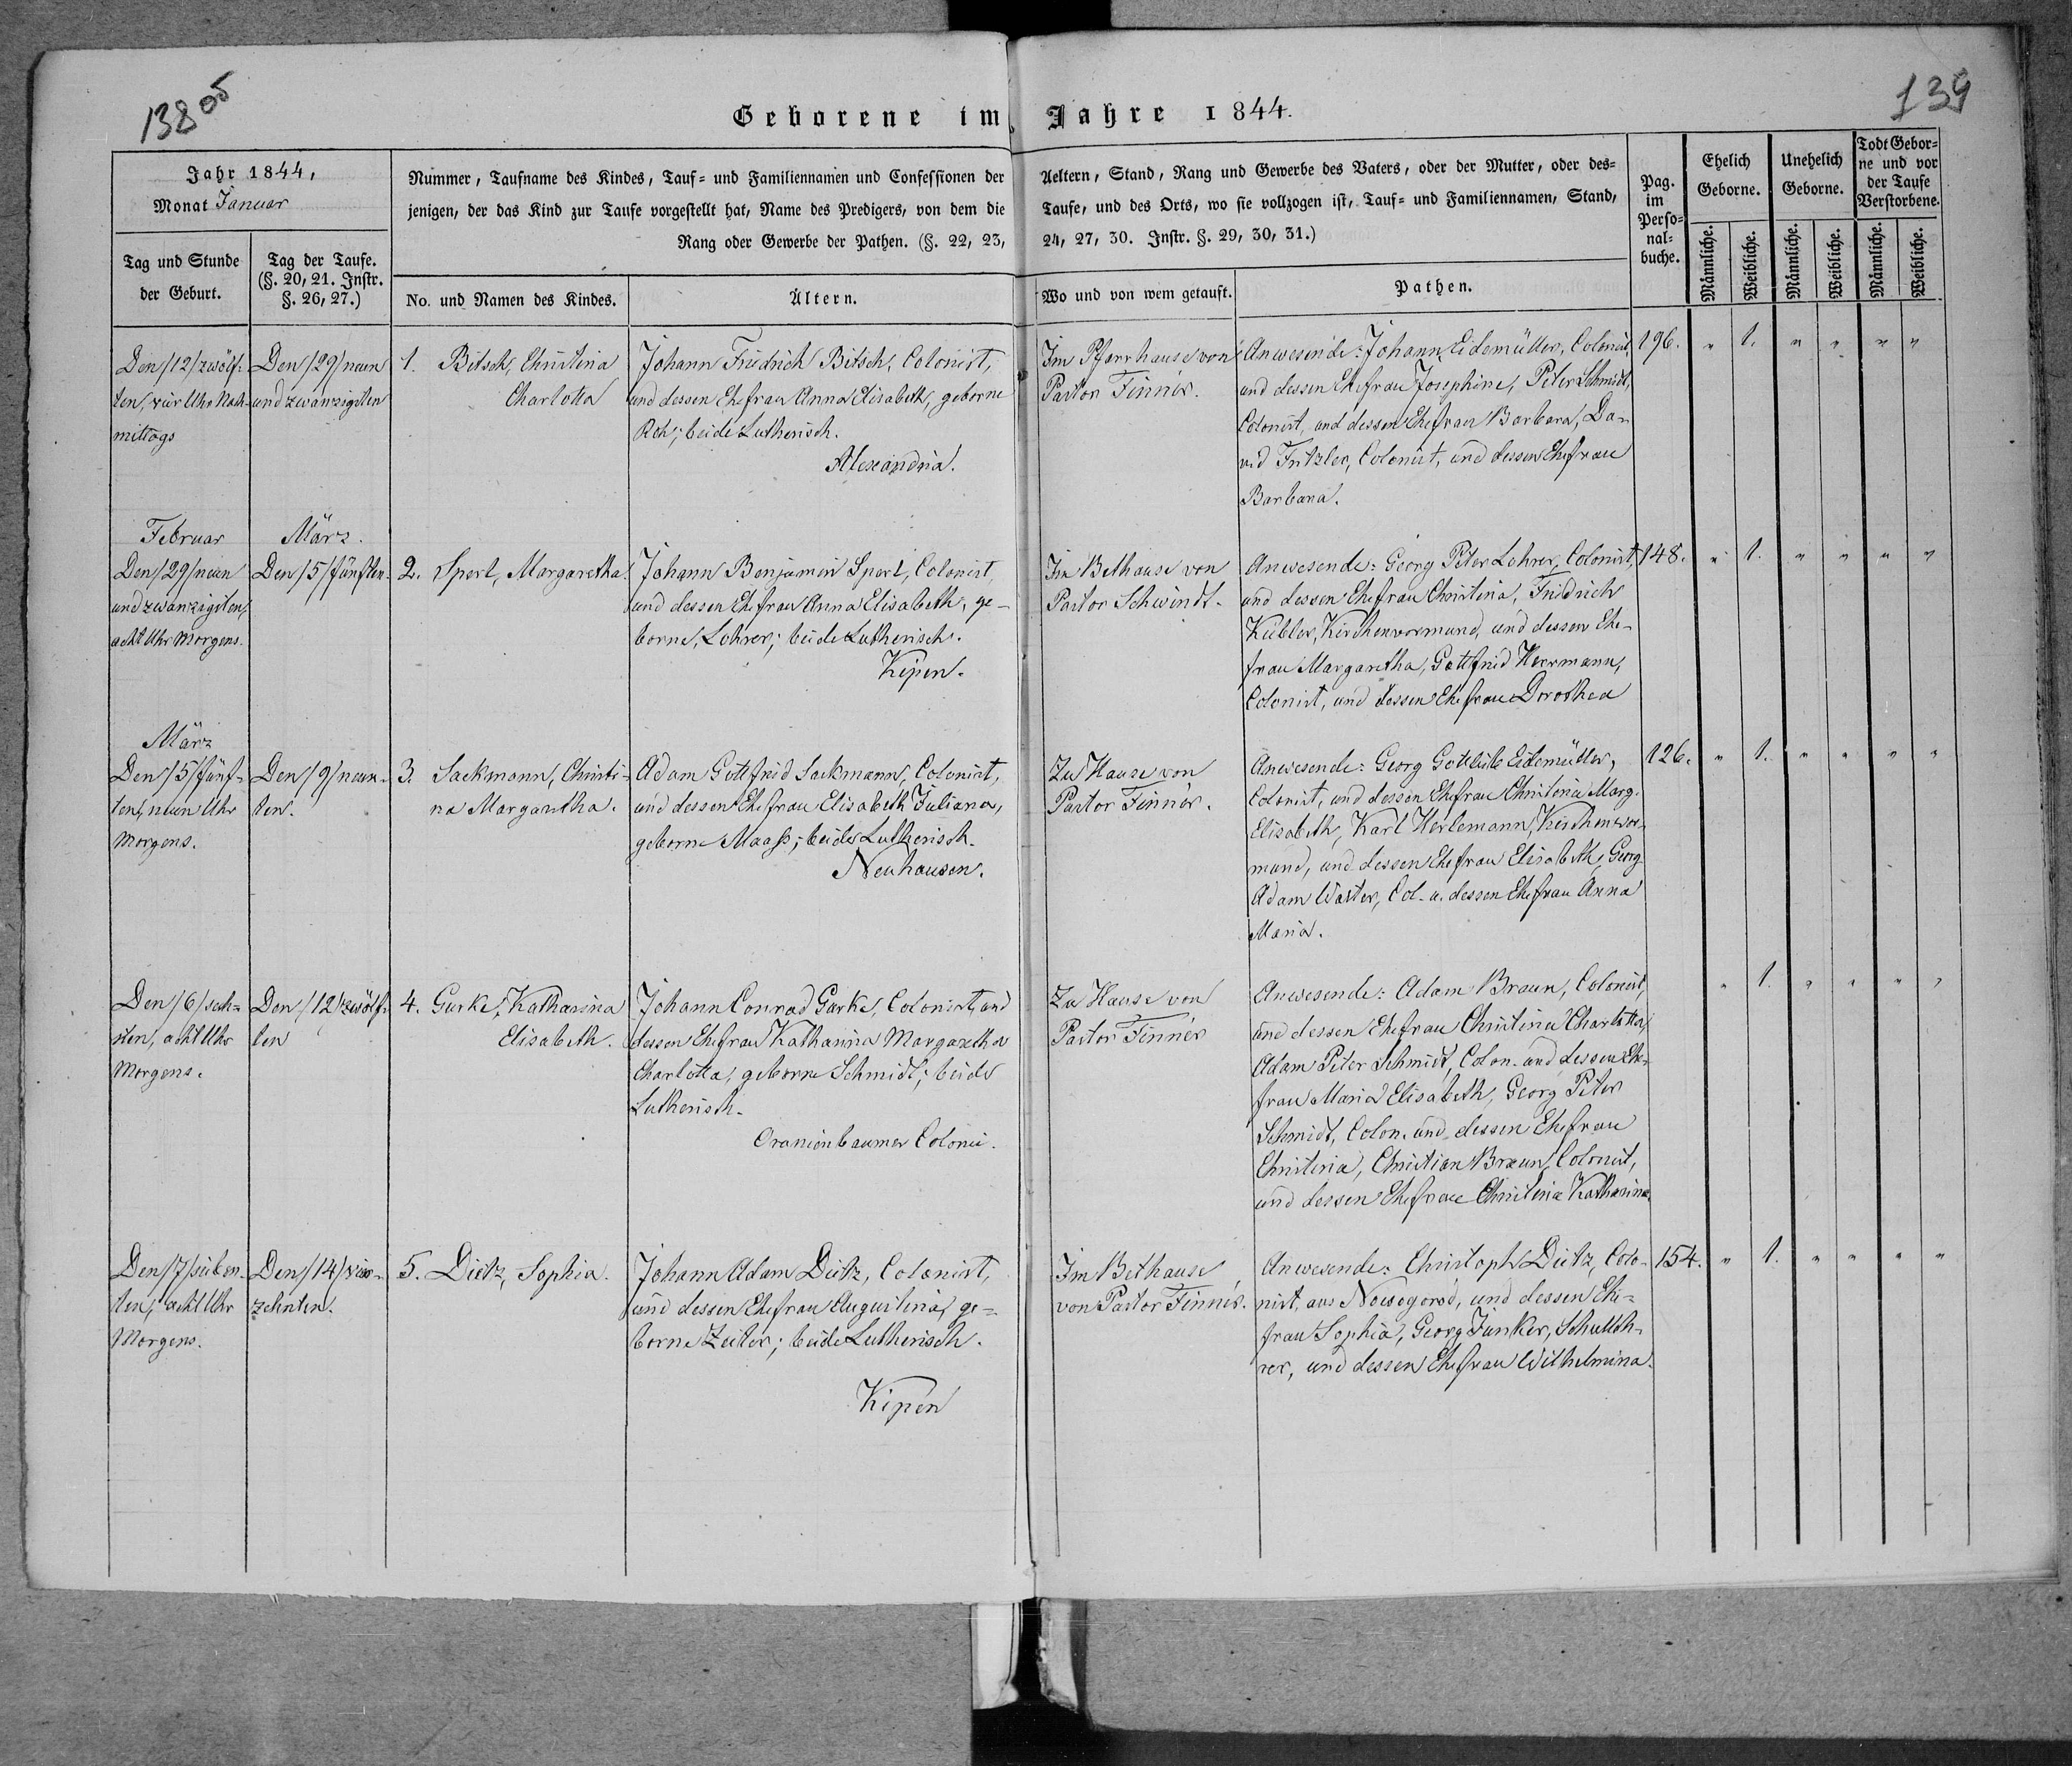 138 os
139
Geborene im Jahre 1844.
Jahr 1844,
Monat Januar
Nummer, Taufname des Kindes, Tauf- und Familiennamen und Confessionen der Aeltern, Stand, Rang und Gewerbe des Vaters, oder der Mutter, oder des-
jenigen, der das Kind zur Taufe vorgestellt hat, Name des Predigers, von dem die Taufe, und des Orts, wo sie vollzogen ist, Tauf- und Familiennamen, Stand,
Rang oder Gewerbe der Pathen. (§. 22, 23, 24, 27, 30. Instr. §. 29, 30, 31.)
Pag.
im
Perso-
nal-
buche.
Ehelich
Geborne.
Unehelich
Geborne.
Todt Gebor-
ne und vor
der Taufe
Verstorbene.
Männliche.
Weibliche.
Männliche.
Weibliche.
Männliche.
Weibliche.
Tag und Stunde
der Geburt.
Tag der Taufe.
(§. 20, 21. Instr.
§. 26, 27.)
No. und Namen des Kindes.
Ältern.
Wo und von wem getauft.
Pathen.
Den /12/ zwölf-
ten, vier Uhr Nach-
mittags
Den /29/ neun
und zwanzigsten
1. Bitsch, Christina
Charlotta
Johann Friedrich Bitsch, Colonist,
und dessen Ehefrau Anna Elisabeth, geborne
; beide Lutherisch.
Alexandria.
Im Pfarrhause von
Pastor Finnér.
Anwesende: Johann Eidemüller, Colonist,
und dessen Ehefrau Josephine, Peter Schmidt,
Colonist, und dessen Ehefrau Barbara, Da-
vid Fritzler, Colonist, und dessen Ehefrau
Barbara.
196. " 1. " " " "
Februar
Den /29/ neun
und zwanzigsten,
acht Uhr Morgens.
März.
Den /5/ fünften.
2. Sperl, Margaretha.
Johann Benjamin Sperl, Colonist,
und dessen Ehefrau Anna Elisabeth, ge-
borne Lohrer; beide Lutherisch.
Kipen.
Im Bethause von
Pastor Schwindt.
Anwesende: Georg Peter Lohrer, Colonist,
und dessen Ehefrau Christina, Fridrich
Kübler, Kirchenvormund, und dessen Ehe-
frau Margaretha, Gottfrid Herrmann,
Colonist, und dessen Ehefrau Dorothea
148. " 1. " " " "
März
Den /5/ fünf-
ten, neun Uhr
Morgens.
Den /9/ neun-
ten.
3. Sackmann, Christi-
na Margaretha.
Adam Gottfrid Sackmann, Colonist,
und dessen Ehefrau Elisabeth Juliana,
geborne Maaß; beide Lutherisch.
Neuhausen.
Zu Hause von
Pastor Finnér.
Anwesende: Georg Gottlieb Eidemüller,
Colonist, und dessen Ehefrau Christina Marg.
Elisabeth, Karl Herlemann, Kirchenvor-
mund, und dessen Ehefrau Elisabeth, Georg
Adam Walter, Col. u. dessen Ehefrau Anna
Maria.
126. " 1. " " " "
Den /6/ sech-
sten, acht Uhr
Morgens.
Den /12/ zwölf-
ten
4. Gurke, Katharina
Elisabeth.
Johann Conrad Gurke, Colonist, und
dessen Ehefrau Katharina Margaretha
Charlotta, geborne Schmidt; beide
Lutherisch.
Oranienbaumer Colonie.
Zu Hause von
Pastor Finnér
Anwesende: Adam Braun, Colonist,
und dessen Ehefrau Christina Charlotta,
Adam Peter Schmidt, Colon. und dessen Ehe-
frau Maria Elisabeth, Georg Peter
Schmidt, Colon. und dessen Ehefrau
Christina, Christian Braun, Colonist,
und dessen Ehefrau Christina Katharina.
" 1. " " " "
Den /7/ sieben-
ten, acht Uhr
Morgens.
Den /14/ vier-
zehnten.
5. Dietz, Sophia.
Johann Adam Dietz, Colonist,
und dessen Ehefrau Augustina, ge-
borne Zeiter; beide Lutherisch.
Kipen
Im Bethause
von Pastor Finnér.
Anwesende: Christoph Dietz, Colo-
nist, aus Nowogorod, und dessen Ehe-
frau Sophia, Georg Junker, Schulleh-
rer, und dessen Ehefrau Wilhelmina.
154. " 1. " " " "